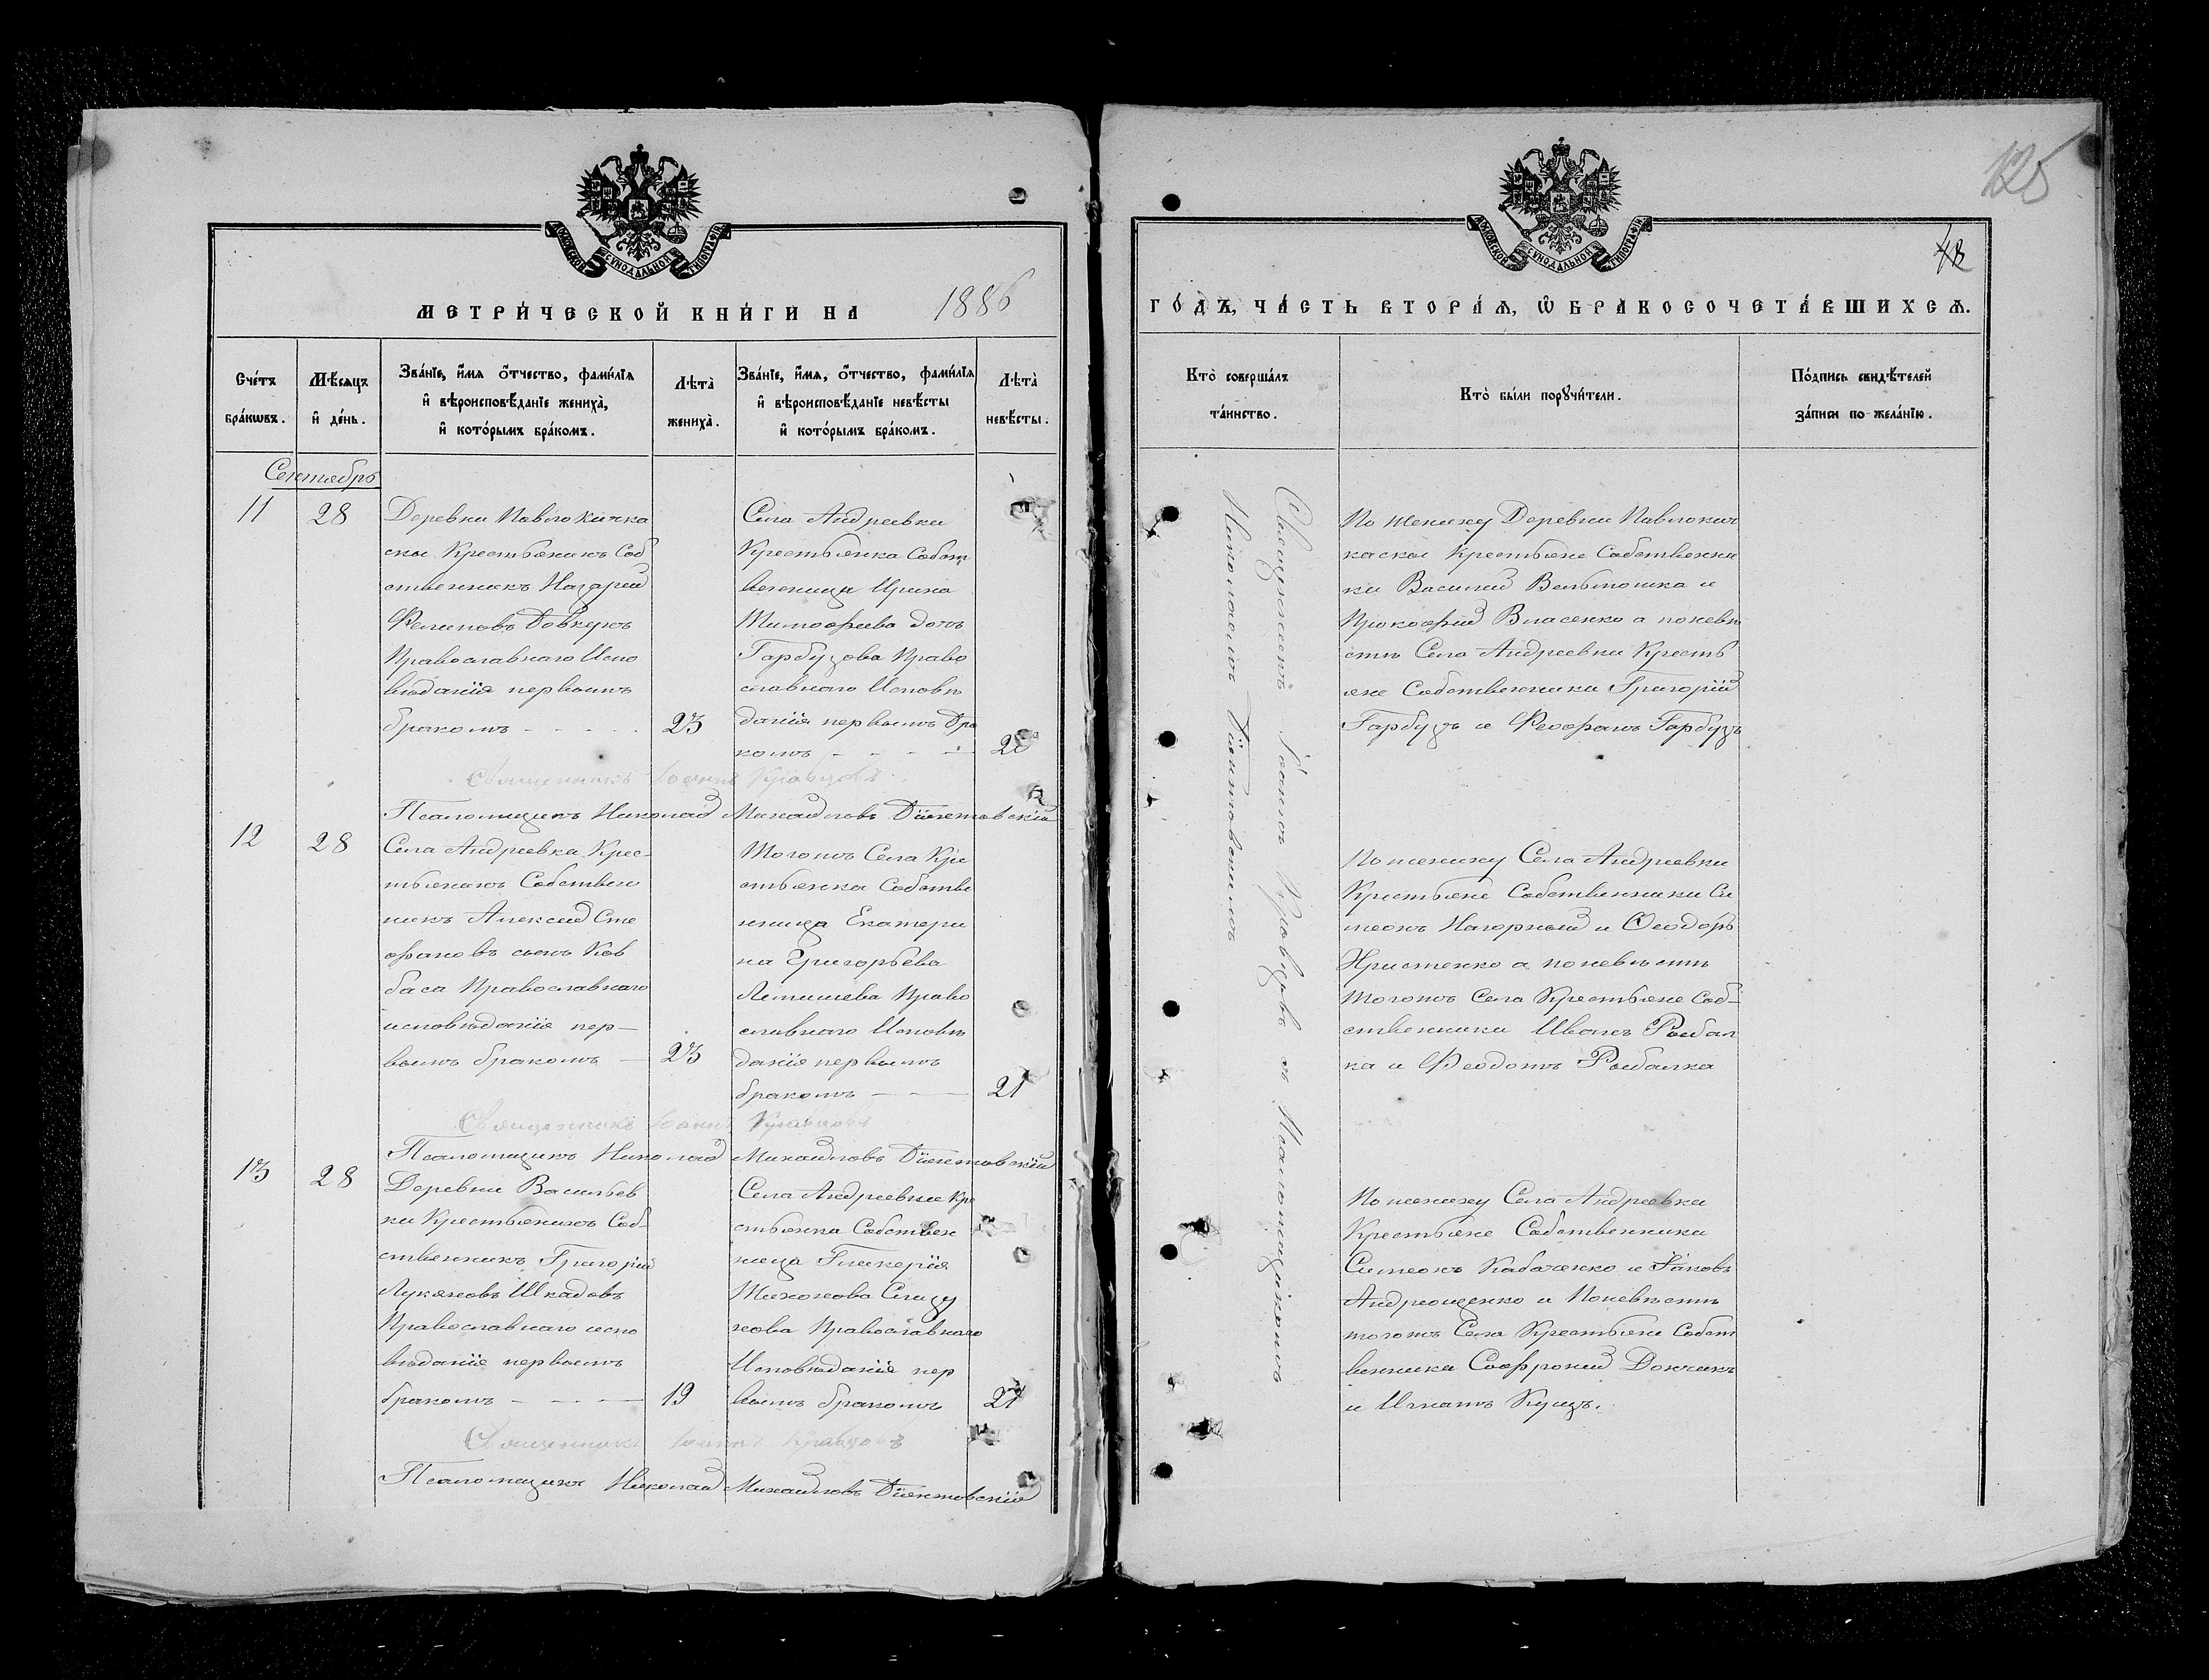 МОСКОВСКОЙ СѴНОДАЛЬНОЙ ТИПОГРАФІИ
МЕТРИ́ЧЕСКОЙ КНИ́ГИ НА 1886
Сче́тъ бра́кѡвъ.
Мѣ́сяцъ и҆ де́нь.
Зва́нїе, и҆́мя ѻ҆́тчество, фамѝлїя
и҆ вѣроисповѣ́данїе жениха̀,
и҆ кото́рымъ бра́комъ.
Лѣта̀ жениха̀.
Зва́нїе, и҆́мя, ѻ҆́тчество, фамѝлїя
и҆ вѣроисповѣ́данїе невѣ́сты
и҆ кото́рымъ бра́комъ.
Лѣта̀ невѣ́сты.
Сентябрь
11
28
Деревни Павло Кичка
ски Крестьянинъ Соб
ственникъ Назарий
Филиповъ Довжукъ
Православнаго Испо
вѣданія первымъ
бракомъ
23
Села Андреевки
Крестьянка Собст
венница Ирина
Тимофеева дочь
Гарбузова Право
славнаго Исповѣ
данія первымъ Бра
комъ
20
Священникъ Іоаннъ Кравцовъ
Псаломщикъ Николай Михайловъ Діентовскій
12
28
Села Андреевки Крес-
тьянинъ Собствен
никъ Алексей Сте
фановъ сынъ Ков
баса Православнаго
исповѣданія пер-
вымъ бракомъ
23
Тогожъ Села Кре
стьянка Собстве
нница Екатери
на Григорьева
Летишева Право
славнаго Исповѣ
данія первымъ
бракомъ
21
Священникъ Іоаннъ Кравцовъ
Псаломщикъ Николай Михайловъ Діентовскій
13
28
Деревни Васильев
ки Крестьянинъ Соб-
ственникъ Григорій
Лукяновъ Шкадовъ
Православнаго испо
вѣданія первымъ
бракомъ
19
Села Андреевки Кре
стьянка Собствен
ница Гликерія
Тихонова Слизу
нова Православнаго
Исповѣданія пер
вымъ бракомъ
21
Священникъ Іоаннъ Кравцовъ
Псаломщикъ Николай Михайловъ Діентовскій
125
МОСКОВСКОЙ СѴНОДАЛЬНОЙ ТИПОГРАФІИ
ГО́ДЪ, ЧА́СТЬ ВТОРА́Ѧ, Ѽ БРАКОСОЧЕТА́ВШИХСѦ.
Кто̀ соверша́лъ
та́инство.
Кто̀ бы́ли порꙋчи́тели.
По́дпись свидѣ́телей
за́писи по жела́нїю.
Священникъ Іоаннъ Кравцовъ съ Псаломщикомъ
Николаемъ Діентовскимъ
По жениху Деревни Павлокич
каски Крестьяне Собственни
ки Василий Вельтошка и
Прокофій Власенко а поневѣ
стѣ Села Андреевки Кресть
яне Собственники Григорій
Гарбузъ и Феофанъ Гарбузъ
По жениху Села Андреевки
Крестьяне Собственники Си
меонъ Нагорный и Ѳеодоръ
Христенко а по невѣстѣ
Тогожъ Села Крестьяне Соб-
ственники Иванъ Рыбал
ка и Феодотъ Рыбалка
По жениху Села Андреевки
Крестьяне Собственники
Симеонъ Кабаченко и Яковъ
Андрющенко и Поневѣстѣ
тогожъ Села Крестьяне Собст
венники Софроний Дончикъ
и Игнатъ Куцъ.